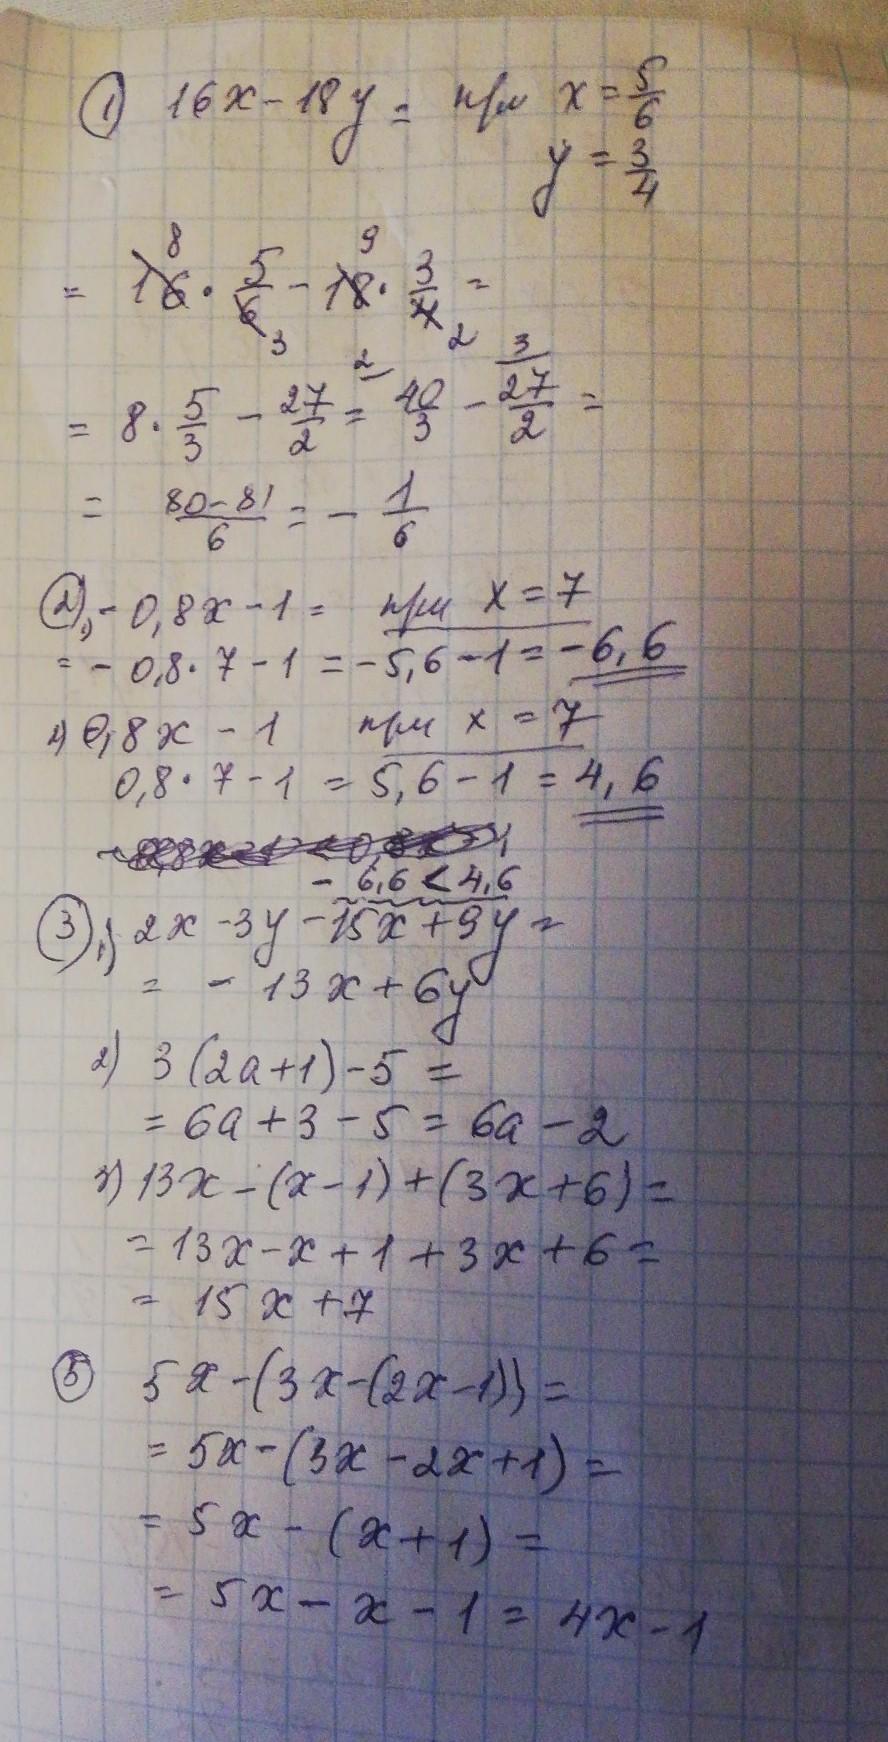 ① 16x - 18y = при x = 5/6
y = 3/4
8 9
= 16 · 5/6 - 18 · 3/4 =
3 2
2 3
= 8 · 5/3 - 27/2 = 40/3 - 27/2 =
= 80-81/6 = - 1/6
② 1) - 0,8x - 1 = при x = 7
= - 0,8 · 7 - 1 = - 5,6 - 1 = - 6,6
0,8x - 1 при x = 7
0,8 · 7 - 1 = 5,6 - 1 = 4,6
- 6,6 < 4,6
③ 1) 2x - 3y - 15x + 9y =
= - 13x + 6y
2) 3(2a+1) - 5 =
= 6a + 3 - 5 = 6a - 2
3) 13x - (x - 1) + (3x + 6) =
= 13x - x + 1 + 3x + 6 =
= 15x + 7
⑤ 5x - (3x - (2x - 1)) =
= 5x - (3x - 2x + 1) =
= 5x - (x + 1) =
= 5x - x - 1 = 4x - 1